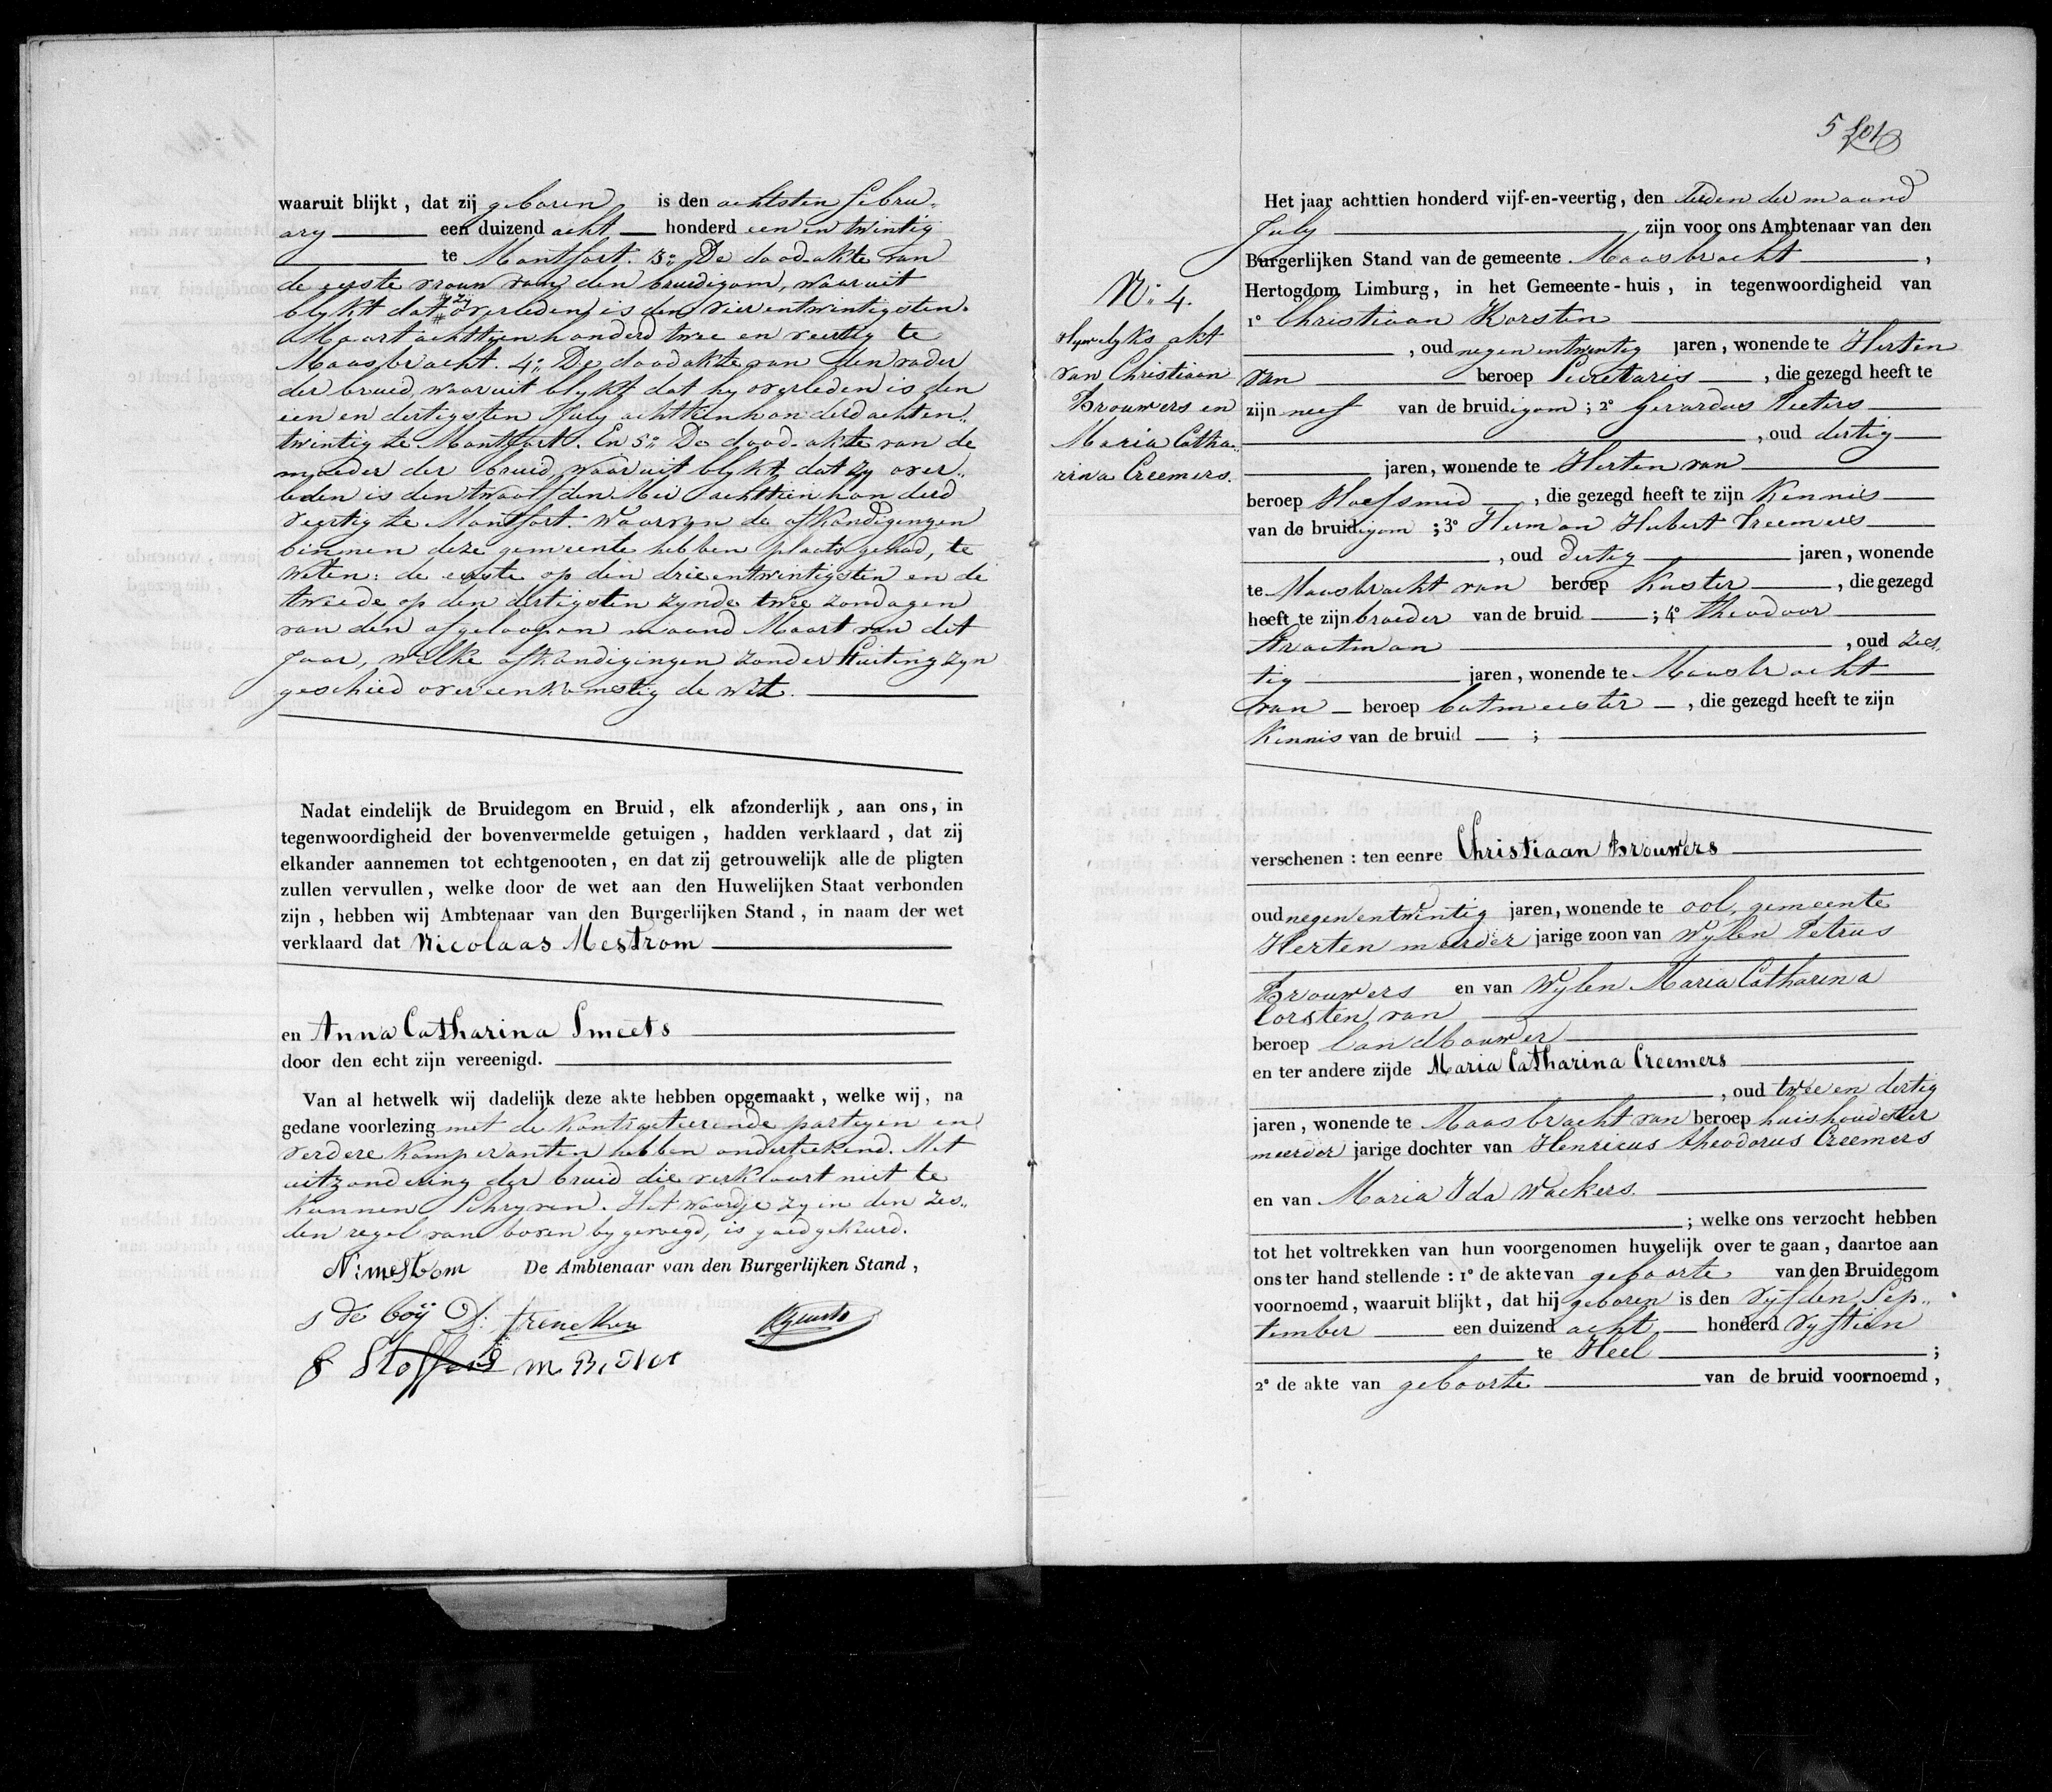 waaruit blijkt, dat zij geboren is den achtsten febru„
ary een duizend acht honderd een en twintig
te Montfort. 3o De dood-akte van
de eerste vrouw van den bruidigom, waaruit
blykt dat zy overleden is den vier entwintigsten
Maart achttien honderd twee en veertig te
Maasbracht. 4o De doodakte van den vader
der bruid, waaruit blykt dat hy overleden is den
een en dertigsten July achttien honderd achten„
twintig te Montfort. En 5o De dood-akte van de
moeder der bruid waaruit blykt, dat zy over„
leden is den twaalfden Mei achttien honderd
veertig te Montfort. Waarvan de afkondigingen
binnen deze gemeente hebben plaats gehad, te
weten: de eerste op den drieentwintigsten en de
tweede op den dertigsten zynde twee zondagen
van den afgeloopen maand Maart van dit
Jaar, welke afkondigingen zonder stuiting zyn
geschied overeenkomstig de wet.
Nadat eindelijk de Bruidegom en Bruid, elk afzonderlijk, aan ons, in
tegenwoordigheid der bovenvermelde getuigen, hadden verklaard, dat zij
elkander aannemen tot echtgenooten, en dat zij getrouwelijk alle de pligten
zullen vervullen, welke door de wet aan den Huwelijken Staat verbonden
zijn, hebben wij Ambtenaar van den Burgerlijken Stand, in naam der wet
verklaard dat Nicolaas Mestrom
en Anna Catharina Smeets
door den echt zijn vereenigd.
Van al hetwelk wij dadelijk deze akte hebben opgemaakt, welke wij, na
gedane voorlezing met de kontracteerende partyen en
verdere komparanten hebben onderteekend. Met
uitzondering der bruid die verklaart niet te
kunnen Schryven. Het woordje zy in den zes„
den regel van boven bygevoegd, is goedgekeurd.
N: mestrom De Ambtenaar van den Burgerlijken Stand,
s de boÿ
5
Het jaar achttien honderd vijf-en-veertig, den eersten der maand
July zijn voor ons Ambtenaar van den
Burgerlijken Stand van de gemeente Maasbracht,
Hertogdom Limburg, in het Gemeente-huis, in tegenwoordigheid van
1o Christiaan Korsten
, oud negen entwintig jaren, wonende te Herten
van beroep Secretaris, die gezegd heeft te
zijn neef van de bruidigom; 2o Gerardus Peeters
, oud dertig
jaren, wonende te Herten van
beroep Hoefsmid, die gezegd heeft te zijn Kennis
van de bruidigom; 3o Herman Hubert Creemers
, oud dertig jaren, wonende
te Maasbracht van beroep Koster, die gezegd
heeft te zijn broeder van de bruid; 4o theodoor
Straetman, oud zes„
tig jaren, wonende te Maasbracht
van beroep batmeester, die gezegd heeft te zijn
Kennis van de bruid;
No 4.
Huwelyks akt
van Christiaan
Brouwers en
Maria Catha„
rina Creemers.
verschenen: ten eenre Christiaan Brouwers
oud negenentwintig jaren, wonende te ool, gemeente
Herten meerder jarige zoon van Wylen Petrus
Brouwers en van Wylen Maria Catharina
Corsten van
beroep Landbouwer
en ter andere zijde Maria Catharina Creemers
, oud twee en dertig
jaren, wonende te Maasbracht van beroep huishoudster
meerder jarige dochter van Henricus theodorus Creemers
en van Maria Ida Wackers.
; welke ons verzocht hebben
tot het voltrekken van hun voorgenomen huwelijk over te gaan, daartoe aan
ons ter hand stellende: 1o de akte van geboorte van den Bruidegom
voornoemd, waaruit blijkt, dat hij geboren is den vyfden Sep„
tember een duizend acht honderd vyftien
te Heel;
2o de akte van geboorte van de bruid voornoemd,